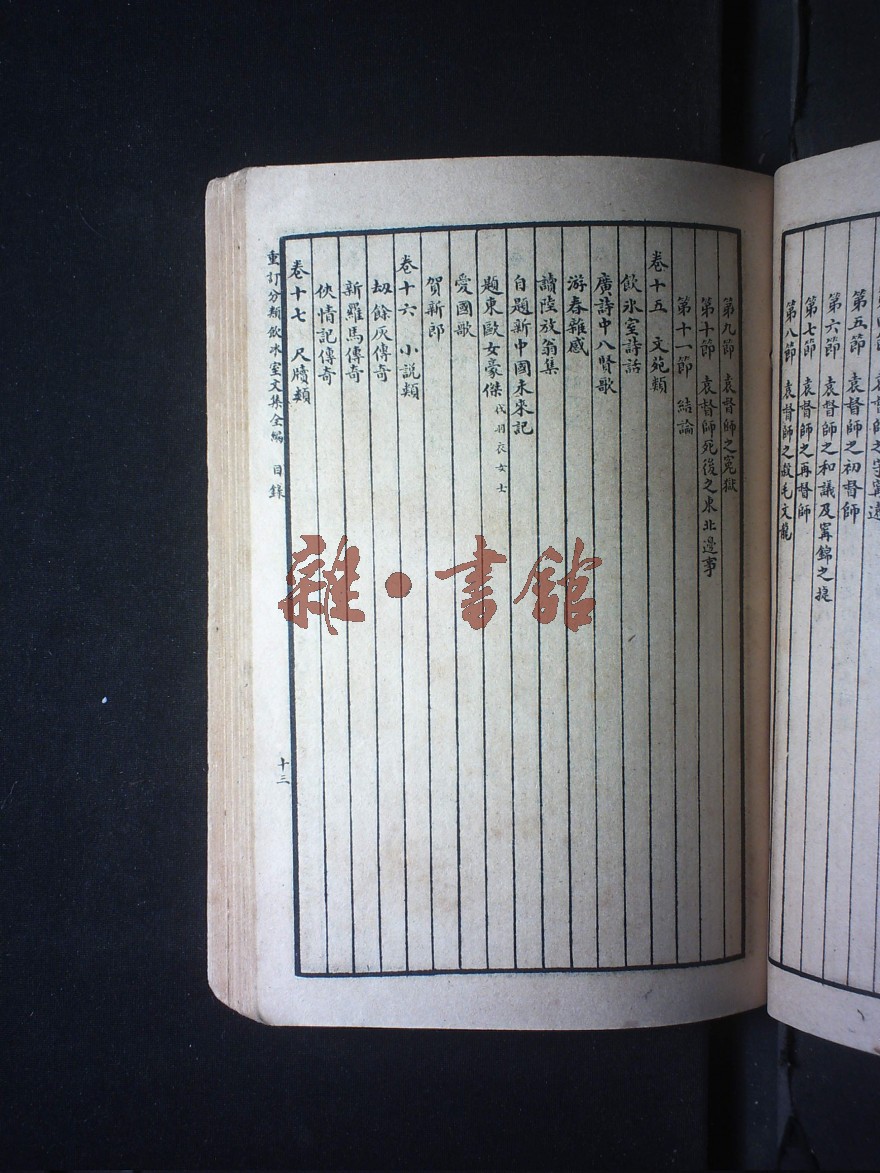 袁督師之守寧遠
第五節 袁督師之初督師
第六節 袁督師之和議及寗錦之捷
第七節 袁督師之再督師
第八節 袁督師之殺毛文龍
第九節 袁督師之冤獄
第十節 袁督師死後之東北邊事
第十一節 結論
卷十五 文苑類
飲氷室詩話
廣詩中八賢歌
游春雜感
讀陸放翁集
自題新中國未來記
題東歐女豪傑 代羽衣女士
愛國歌
賀新郎
卷十六 小説類
刼餘灰傳奇
新羅馬傳奇
俠情記傳奇
卷十七 尺牘類
重訂分類飲冰室文集全編 目錄
十三
雜·書館